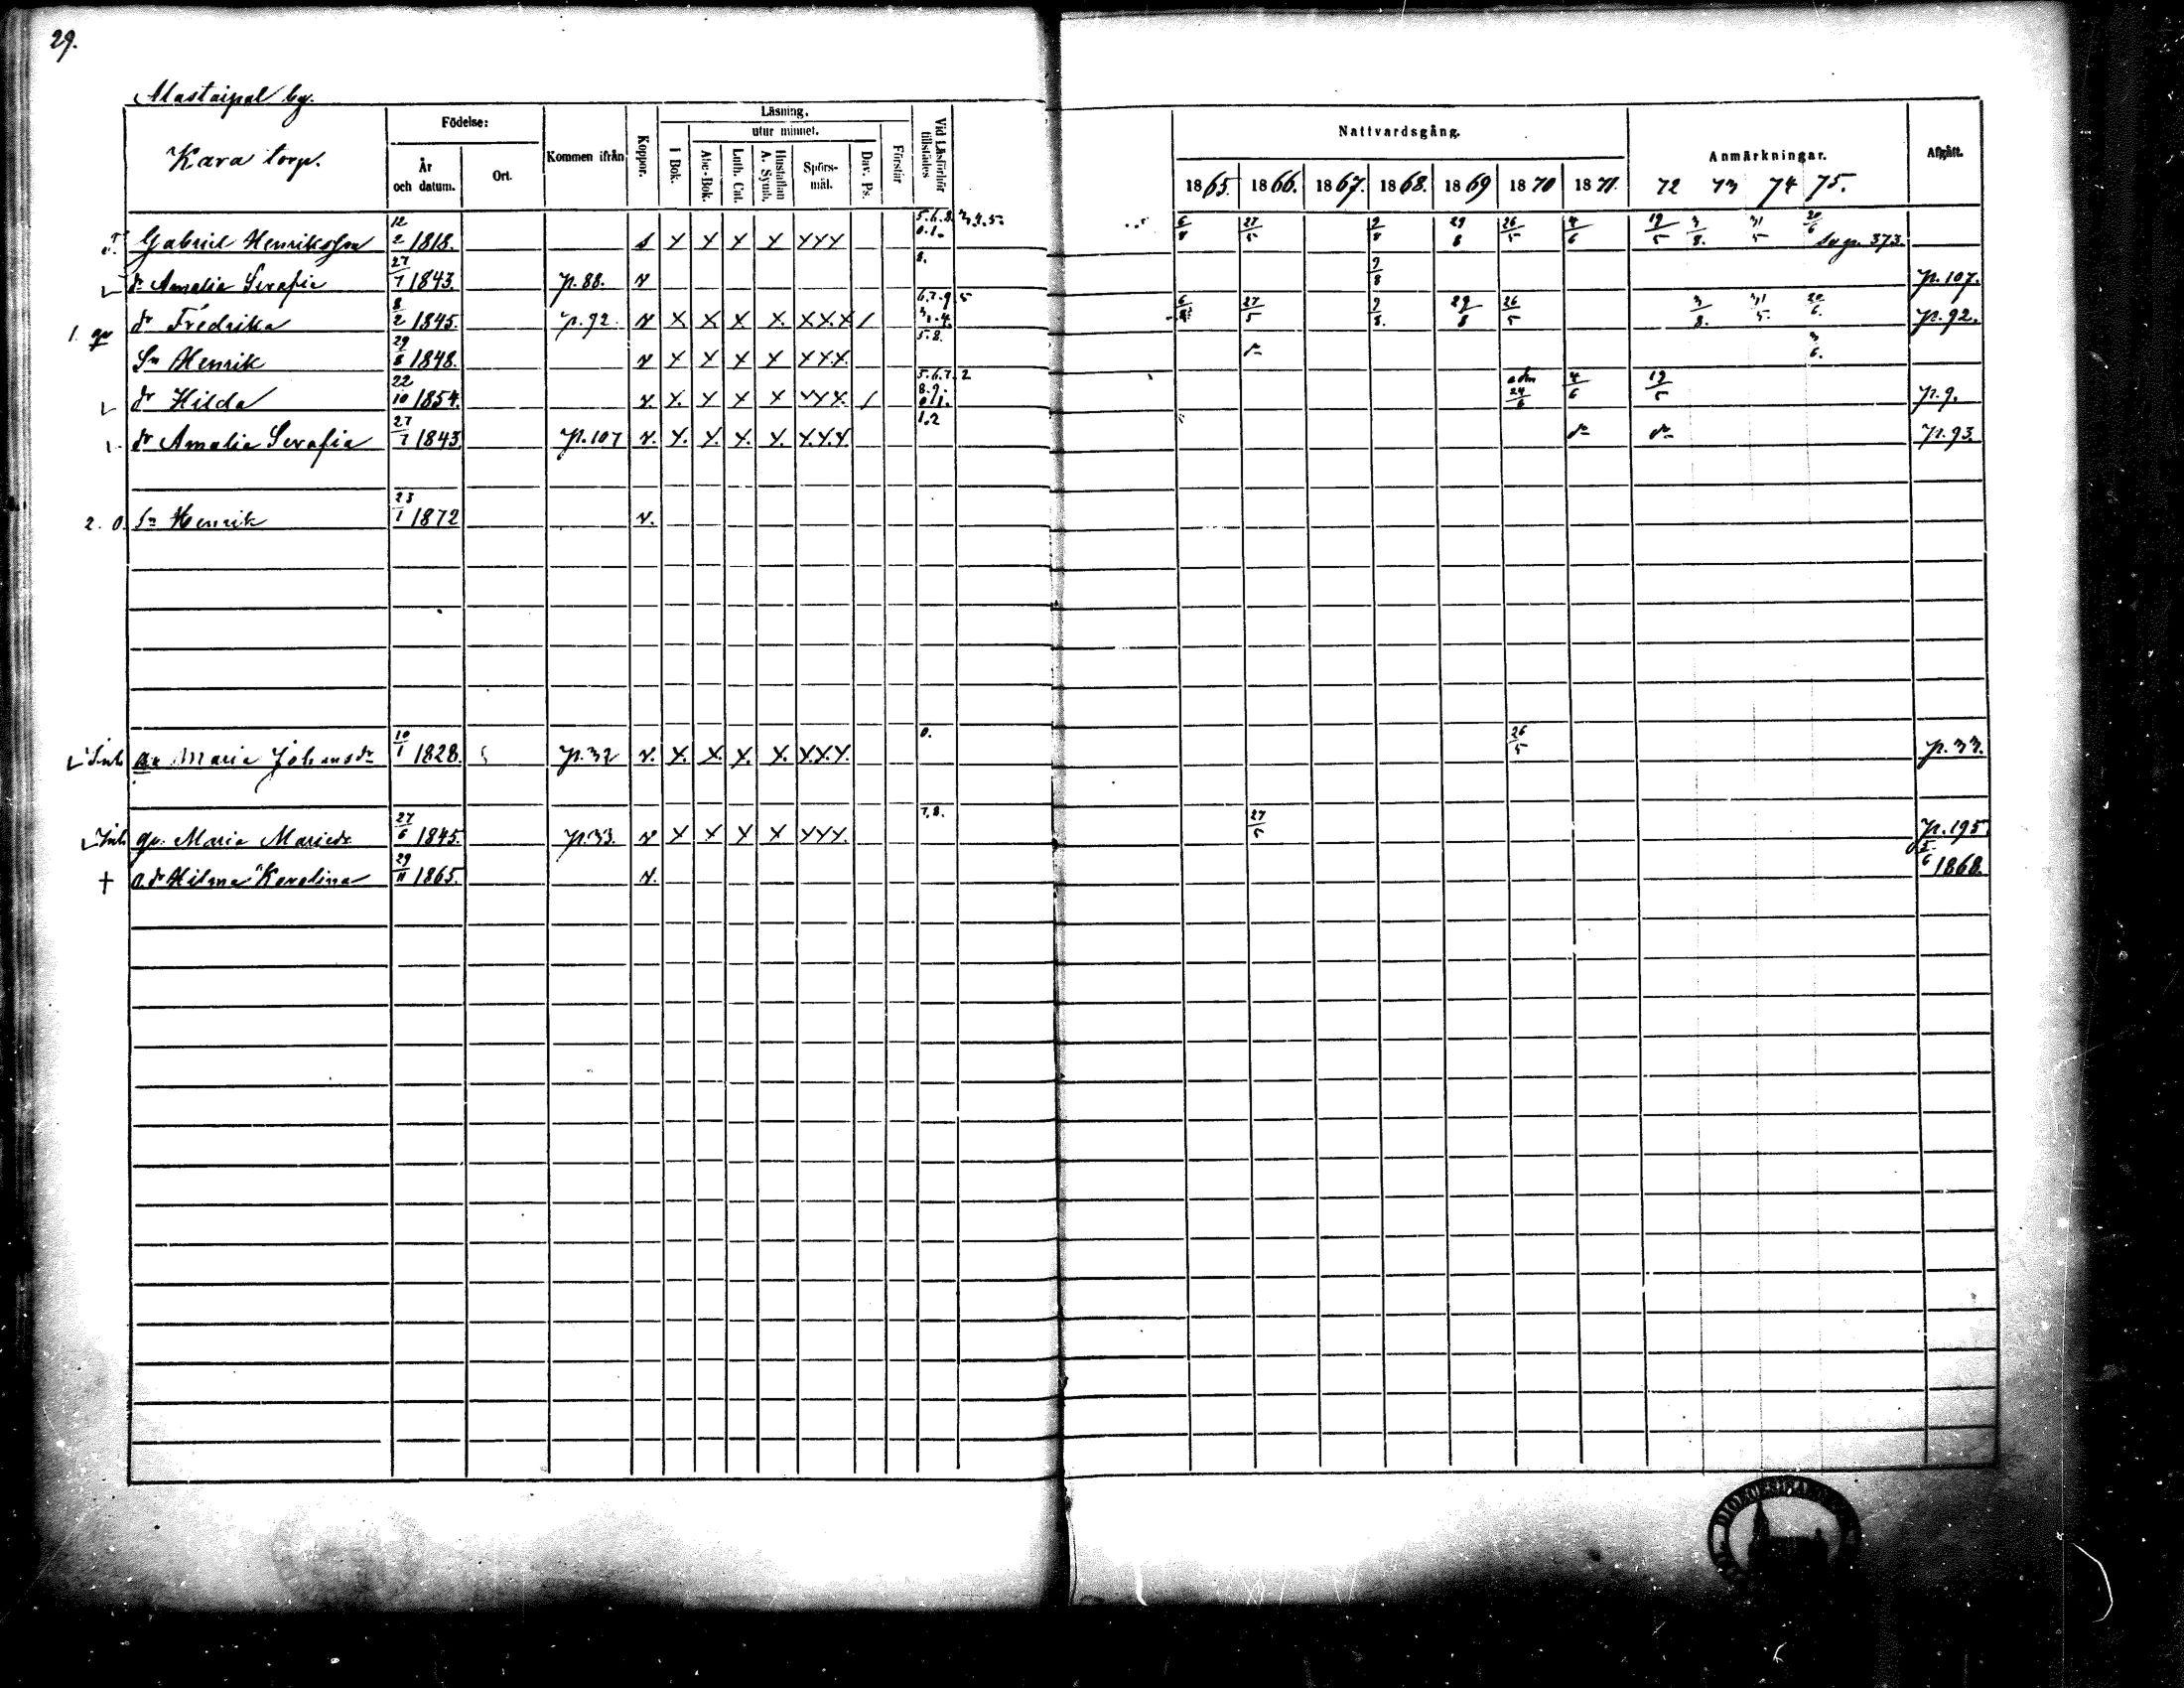 29.
Mastaipal by.
Kara torp.
Födelse:
År och datum.
Ort.
Kommen ifrån
Koppor.
Läsning.
I Bok.
utur minnet.
Abc-Bok.
Luth. Cat.
Hustaflan A. Symb.
Spörs-mål.
Dav. Ps.
Förstår
Vid Läsförhör tillstädes
Nattvardsgång.
1865. 1866. 1867. 1868. 1869 1870 1871.
Anmärkningar.
72 73 74 75.
Afgått.
T. Gabriel Henriksson 12/2 1818. s X X X X XXX 5.6.8. 0.1. 3.4.5. 27/5 29/8 26/5 4/6 19/5 3/8. 31/5 20/6 Se p. 373.
dr Amalia Serafia 27/7 1843. p. 88. v 8. p. 107.
1. qv dr Fredrika 8/2 1845. p. 92. v X X X X. X.X.X / 6.7.9. 5 27/5 29/8 26/5 3/8. 31/5. 20/6. p. 92.
Sn Henrik 29/8 1848. v X X X X XXX. 5.8. dr 3/6.
dr Hilda 22/10 1854. v. X. X X X XXX. / 5.6.7. 2 8.9. 0/1. adm 24/6 4/6 19/5 p. 9.
dr Amalia Serafia 27/7 1843. p. 107 v. X. X. X. X. X.X.X 1.2 dr dr p. 93.
2. 0. Sn Henrik 23/1 1872 v.
Inh Maria Johansdr 10/1 1828. p. 32 v. X. X. X. X. X.X.X. 0. 26/5 p. 33.
Inh qv. Maria Mariedr 27/6 1845. p. 33. v X X X X XXX. 7.8. 27/5 p. 195
† o. dr Hilma Karolina 29/11 1865. v. 1868.